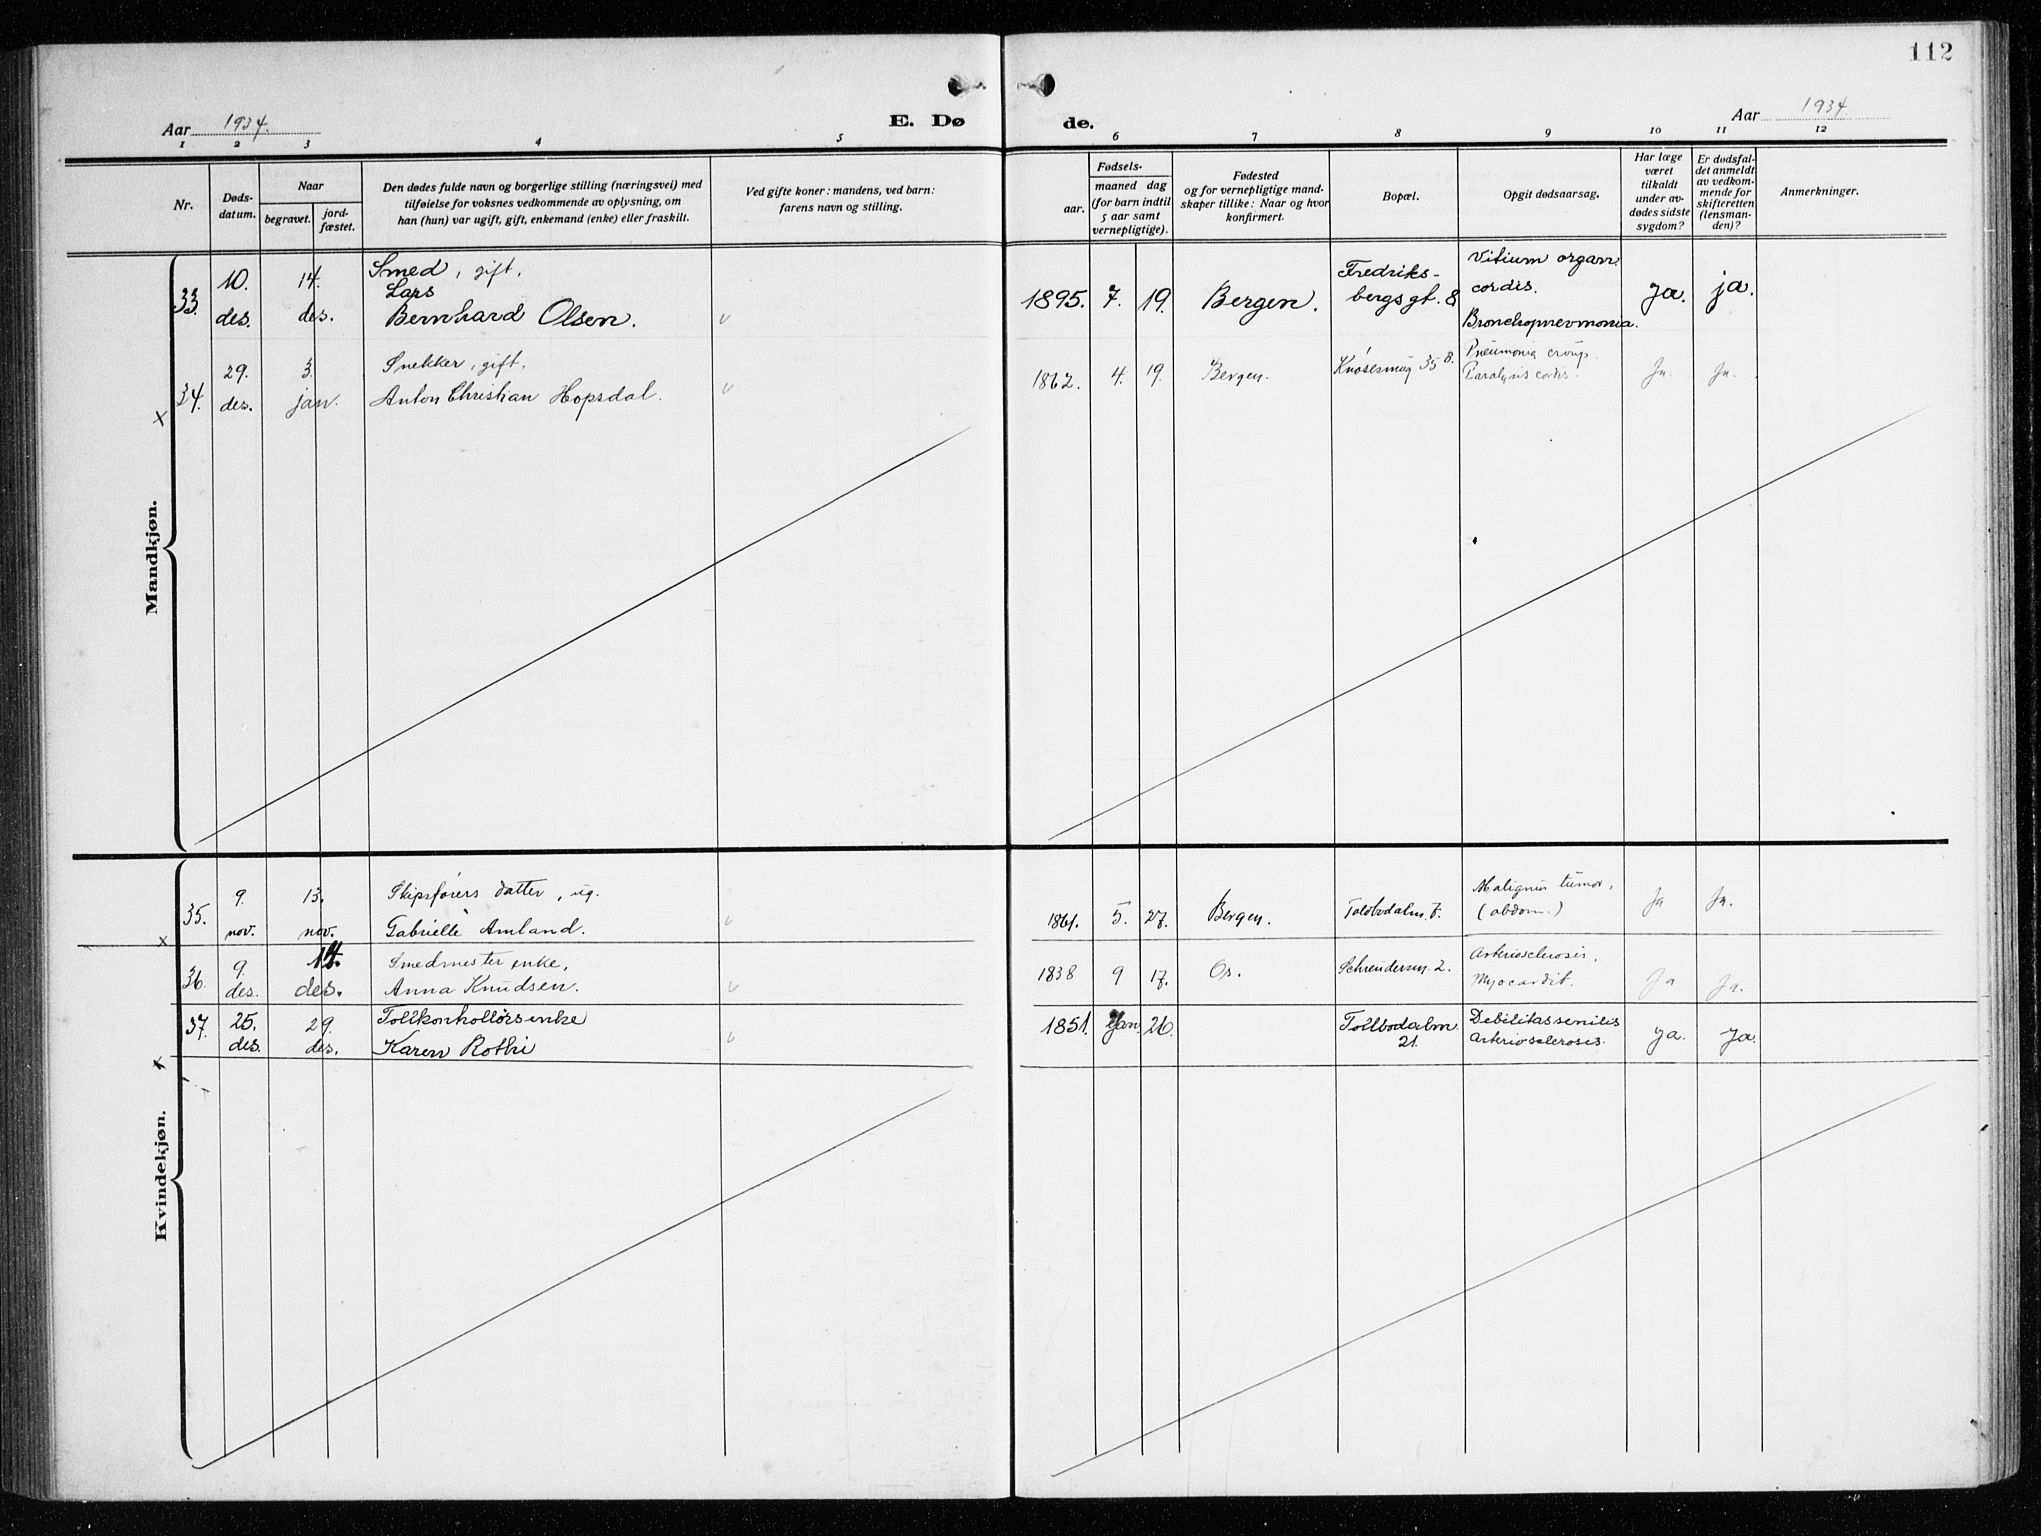 112
Aar 1934.
E. Dø
de.
Aar 1934
1 2 3 4 5 6 7 8 9 10 11 12
Nr.
Døds-
datum.
Naar
begravet.
jord-
fæstet.
Den dødes fulde navn og borgerlige stilling (næringsvei) med
tilføielse for voksnes vedkommende av oplysning, om
han (hun) var ugift, gift, enkemand (enke) eller fraskilt.
Ved gifte koner: mandens, ved barn:
farens navn og stilling.
Fødsels-
aar.
maaned dag
(for barn indtil
5 aar samt
vernepligtige).
Fødested
og for vernepligtige mand-
skaper tillike: Naar og hvor
konfirmert.
Bopæl.
Opgit dødsaarsag.
Har læge
været
tilkaldt
under av-
dødes sidste
sygdom?
Er dødsfal-
det anmeldt
av vedkom-
mende for
skifteretten
(lensman-
den)?
Anmerkninger.
Mandkjøn.
33. 10. des. 14. des.
Smed, gift.
Lars
Bernhard Olsen.
1895. 7. 19. Bergen.
Fredriks-
bergsgt. 8
Vitium organ.
cordis.
Bronchopnevmonia.
Ja. ja.
x 34. 29. des. 3. jan.
Snekker, gift.
Anton Christian Hopsdal.
1862. 4. 19. Bergen.
Knøsesmug 35 B.
Pneumonia croup.
Paralysis cordis.
Ja. Ja.
Kvindekjøn.
x 35. 9. nov. 13. nov.
Skipsførers datter, ug.
Gabrielle Amland.
1861. 5. 27. Bergen.
Toldbodalm. 7.
Malignus tumor,
(abdom.)
Ja Ja.
36. 9. des. 14. des.
Smedmester enke,
Anna Knudsen.
1838 9 17. Os.
Schreudersm. 2.
Arteriosclerosis.
Myocardit.
Ja Ja.
x 37. 25. des. 29. des.
Tollkontrollørsenke
Karen Rothe
1851. Jan. 26.
Tollbodalm
21.
Debilitas senilis
Arteriosclerosis.
Ja. Ja.